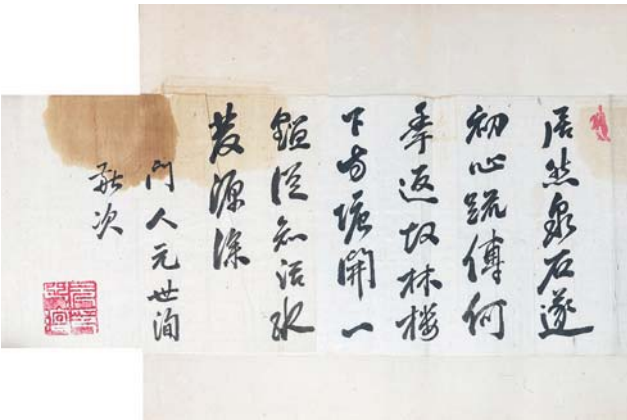 居然泉石遂
初心疏傅何
年返故林樓
下方塘開一
鑑從知活水
發源深
門人元世洵
敬次